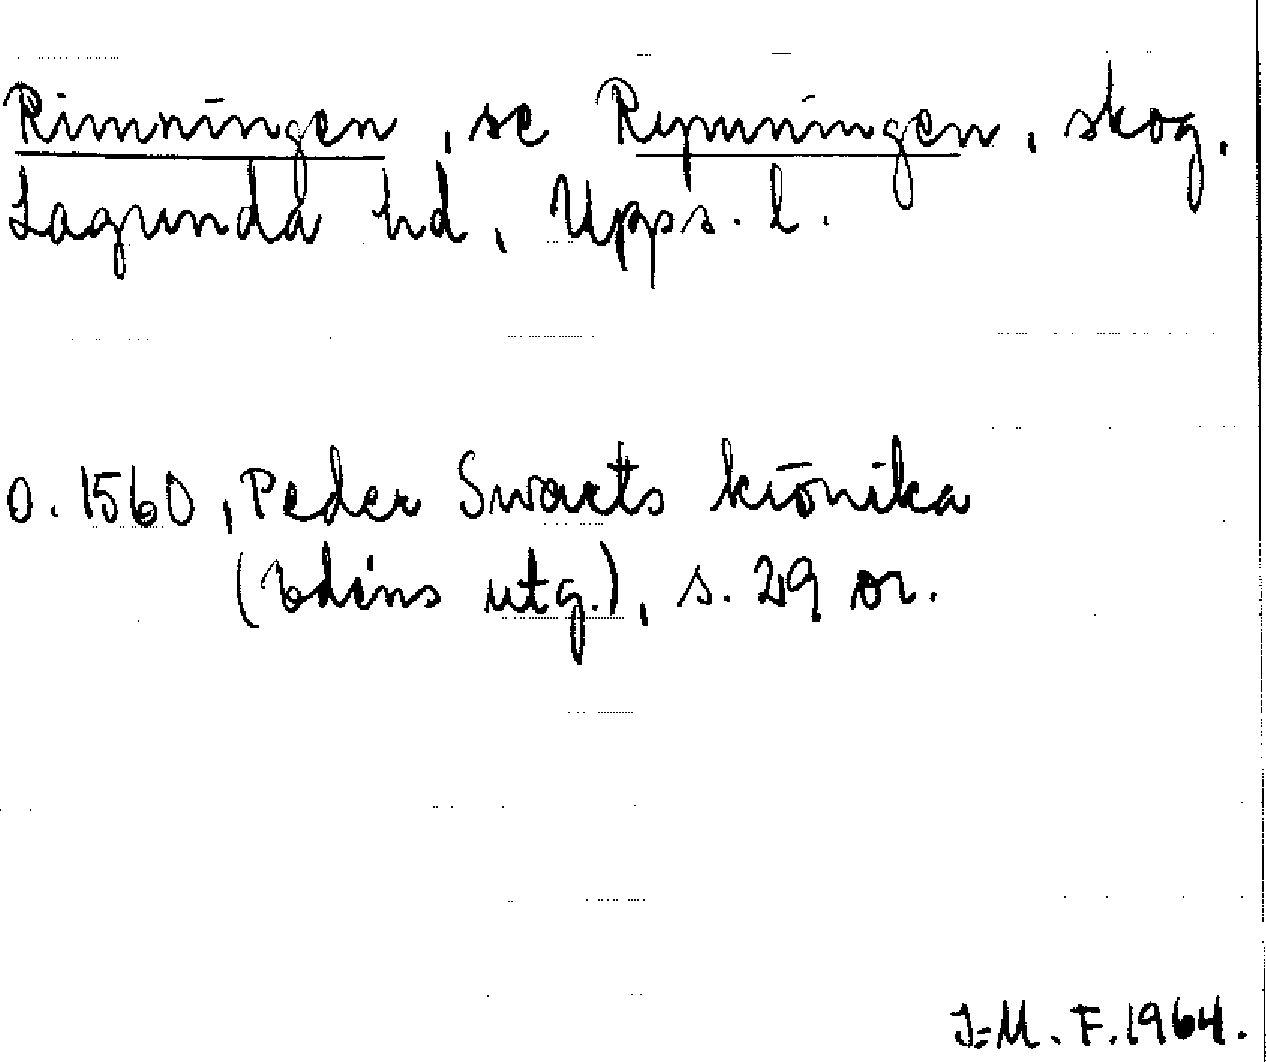 Rimningen, se Rymningen, skog.
Lagunda hd, Upps. l.
O. 1560, Peder Swarts krönika
(Edéns utg.), s. 29 or.
J-M. F. 1964.